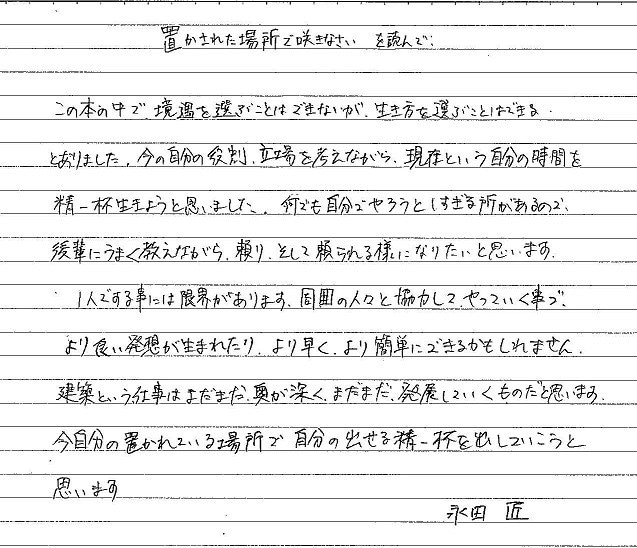 置かされた場所で咲きなさい を読んで:
この本の中で、境遇を選ぶことはできないが、生き方を選ぶことはできる.
とありました。今の自分の役割、立場を考えながら、現在という自分の時間を
精一杯生きようと思いました。何でも自分でやろうとしすぎる所があるので、
後輩にうまく教えながら、頼り、そして頼られる様になりたいと思います。
1人でする事には限界があります。周囲の人々と協力して、やっていく事で、
より良い発想が生まれたり、より早く、より簡単にできるかもしれません。
建築という仕事はまだまだ、奥が深く、まだまだ、発展していくものだと思います。
今自分の置かれている場所で自分の出せる精一杯を出していこうと
思います
永田 匠